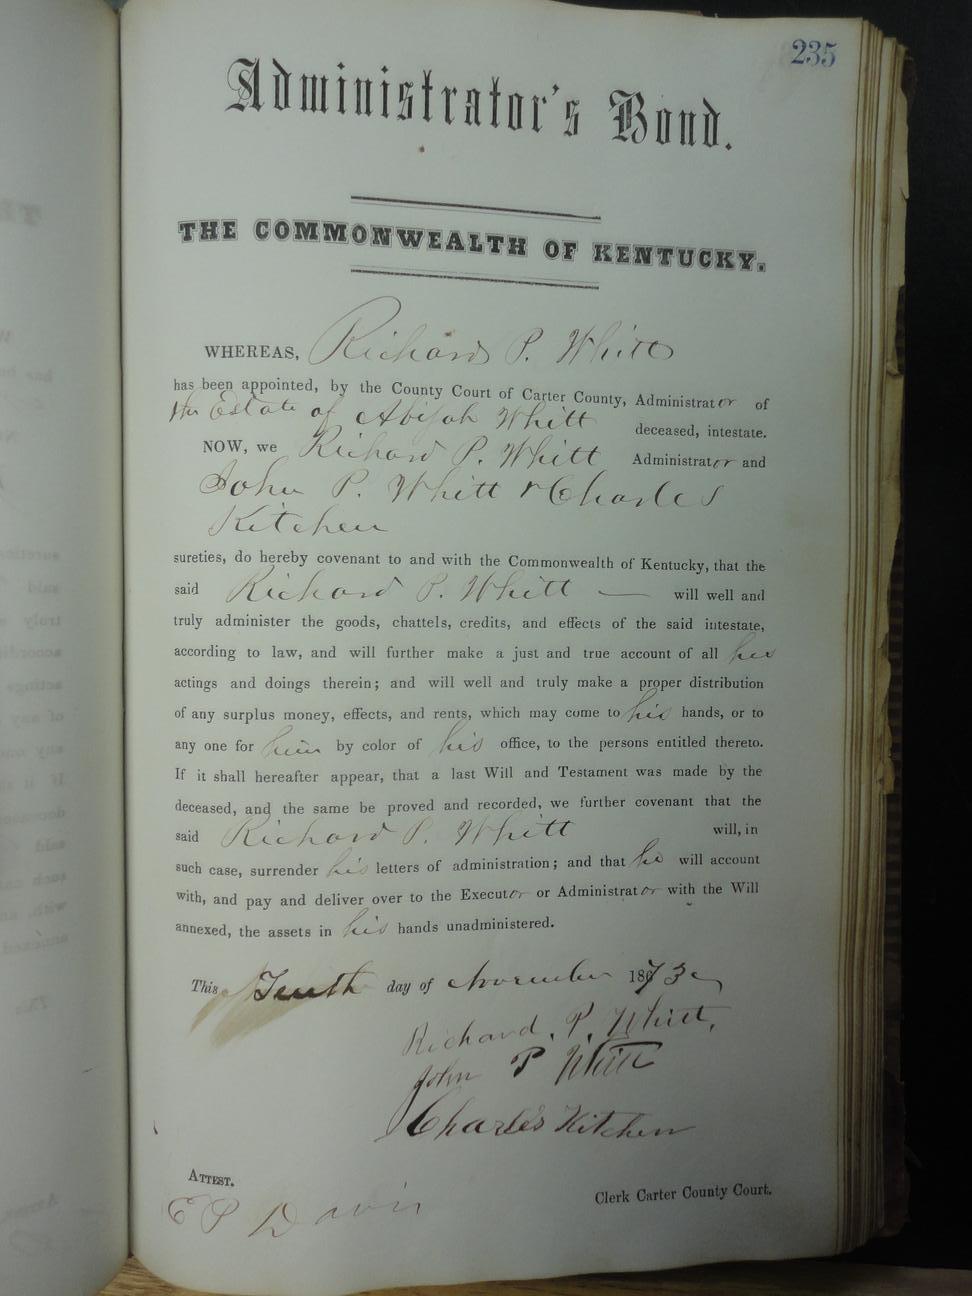 235
Administrator's Bond.
THE COMMONWEALTH OF KENTUCKY.
WHEREAS, Richard P. Whitt
has been appointed, by the County Court of Carter County, Administrator of
the Estate of Abijah Whitt deceased, intestate.
NOW, we Richard P. Whitt Administrator and
John P. Whitt & Charles
Kitchen
sureties, do hereby covenant to and with the Commonwealth of Kentucky, that the
said Richard P. Whitt — will well and
truly administer the goods, chattels, credits, and effects of the said intestate,
according to law, and will further make a just and true account of all his
actings and doings therein; and will well and truly make a proper distribution
of any surplus money, effects, and rents, which may come to his hands, or to
any one for him by color of his office, to the persons entitled thereto.
If it shall hereafter appear, that a last Will and Testament was made by the
deceased, and the same be proved and recorded, we further covenant that the
said Richard P. Whitt will, in
such case, surrender his letters of administration; and that he will account
with, and pay and deliver over to the Executor or Administrator with the Will
annexed, the assets in his hands unadministered.
This Tenth day of November 1873
Richard. P. Whitt,
John P Whitt
Charles Kitchen
ATTEST.
E P Davis
Clerk Carter County Court.